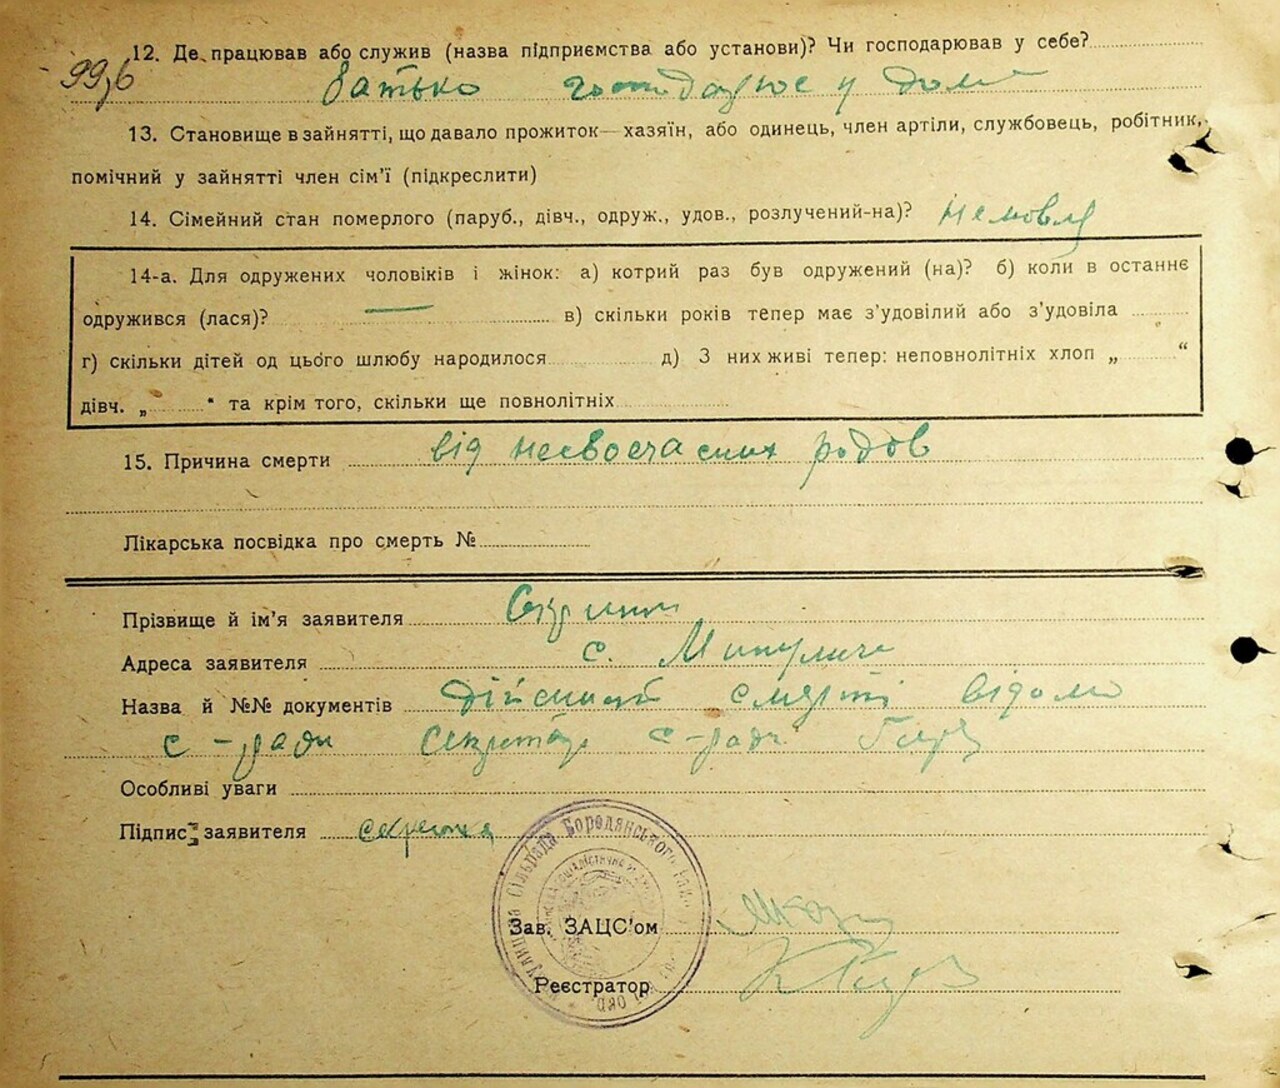 99,6
12. Де працював або служив (назва підприємства або установи)? Чи господарював у себе?
батько господарює у дома
13. Становище в зайнятті, що давало прожиток — хазяїн, або одинець, член артіли, службовець, робітник,
помічний у зайнятті член сім'ї (підкреслити)
14. Сімейний стан померлого (паруб., дівч., одруж., удов., розлучений-на)? Немовля
14-а. Для одружених чоловіків і жінок: а) котрий раз був одружений (на)? б) коли в останнє
одружився (лася)? — в) скільки років тепер має з'удовілий або з'удовіла
г) скільки дітей од цього шлюбу народилося д) З них живі тепер: неповнолітніх хлоп „ “
дівч. „ “ та крім того, скільки ще повнолітніх
15. Причина смерти від несвоєчасних родов
Лікарська посвідка про смерть №
Прізвище й ім'я заявителя
Адреса заявителя с. Микуличі
Назва й №№ документів дійсний смерті відомо
с-ради секретар с-ради
Особливі уваги
Підпис заявителя
Сільрада Бородянського
Зав. ЗАЦС'ом
Реєстратор